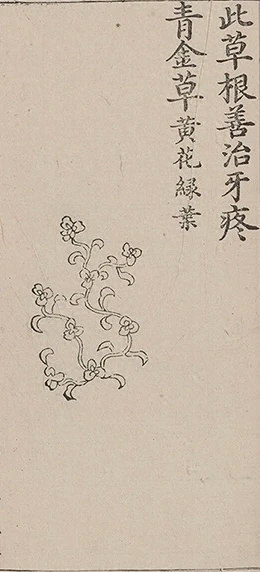 此草根善治牙疼
青金草黃花緑葉